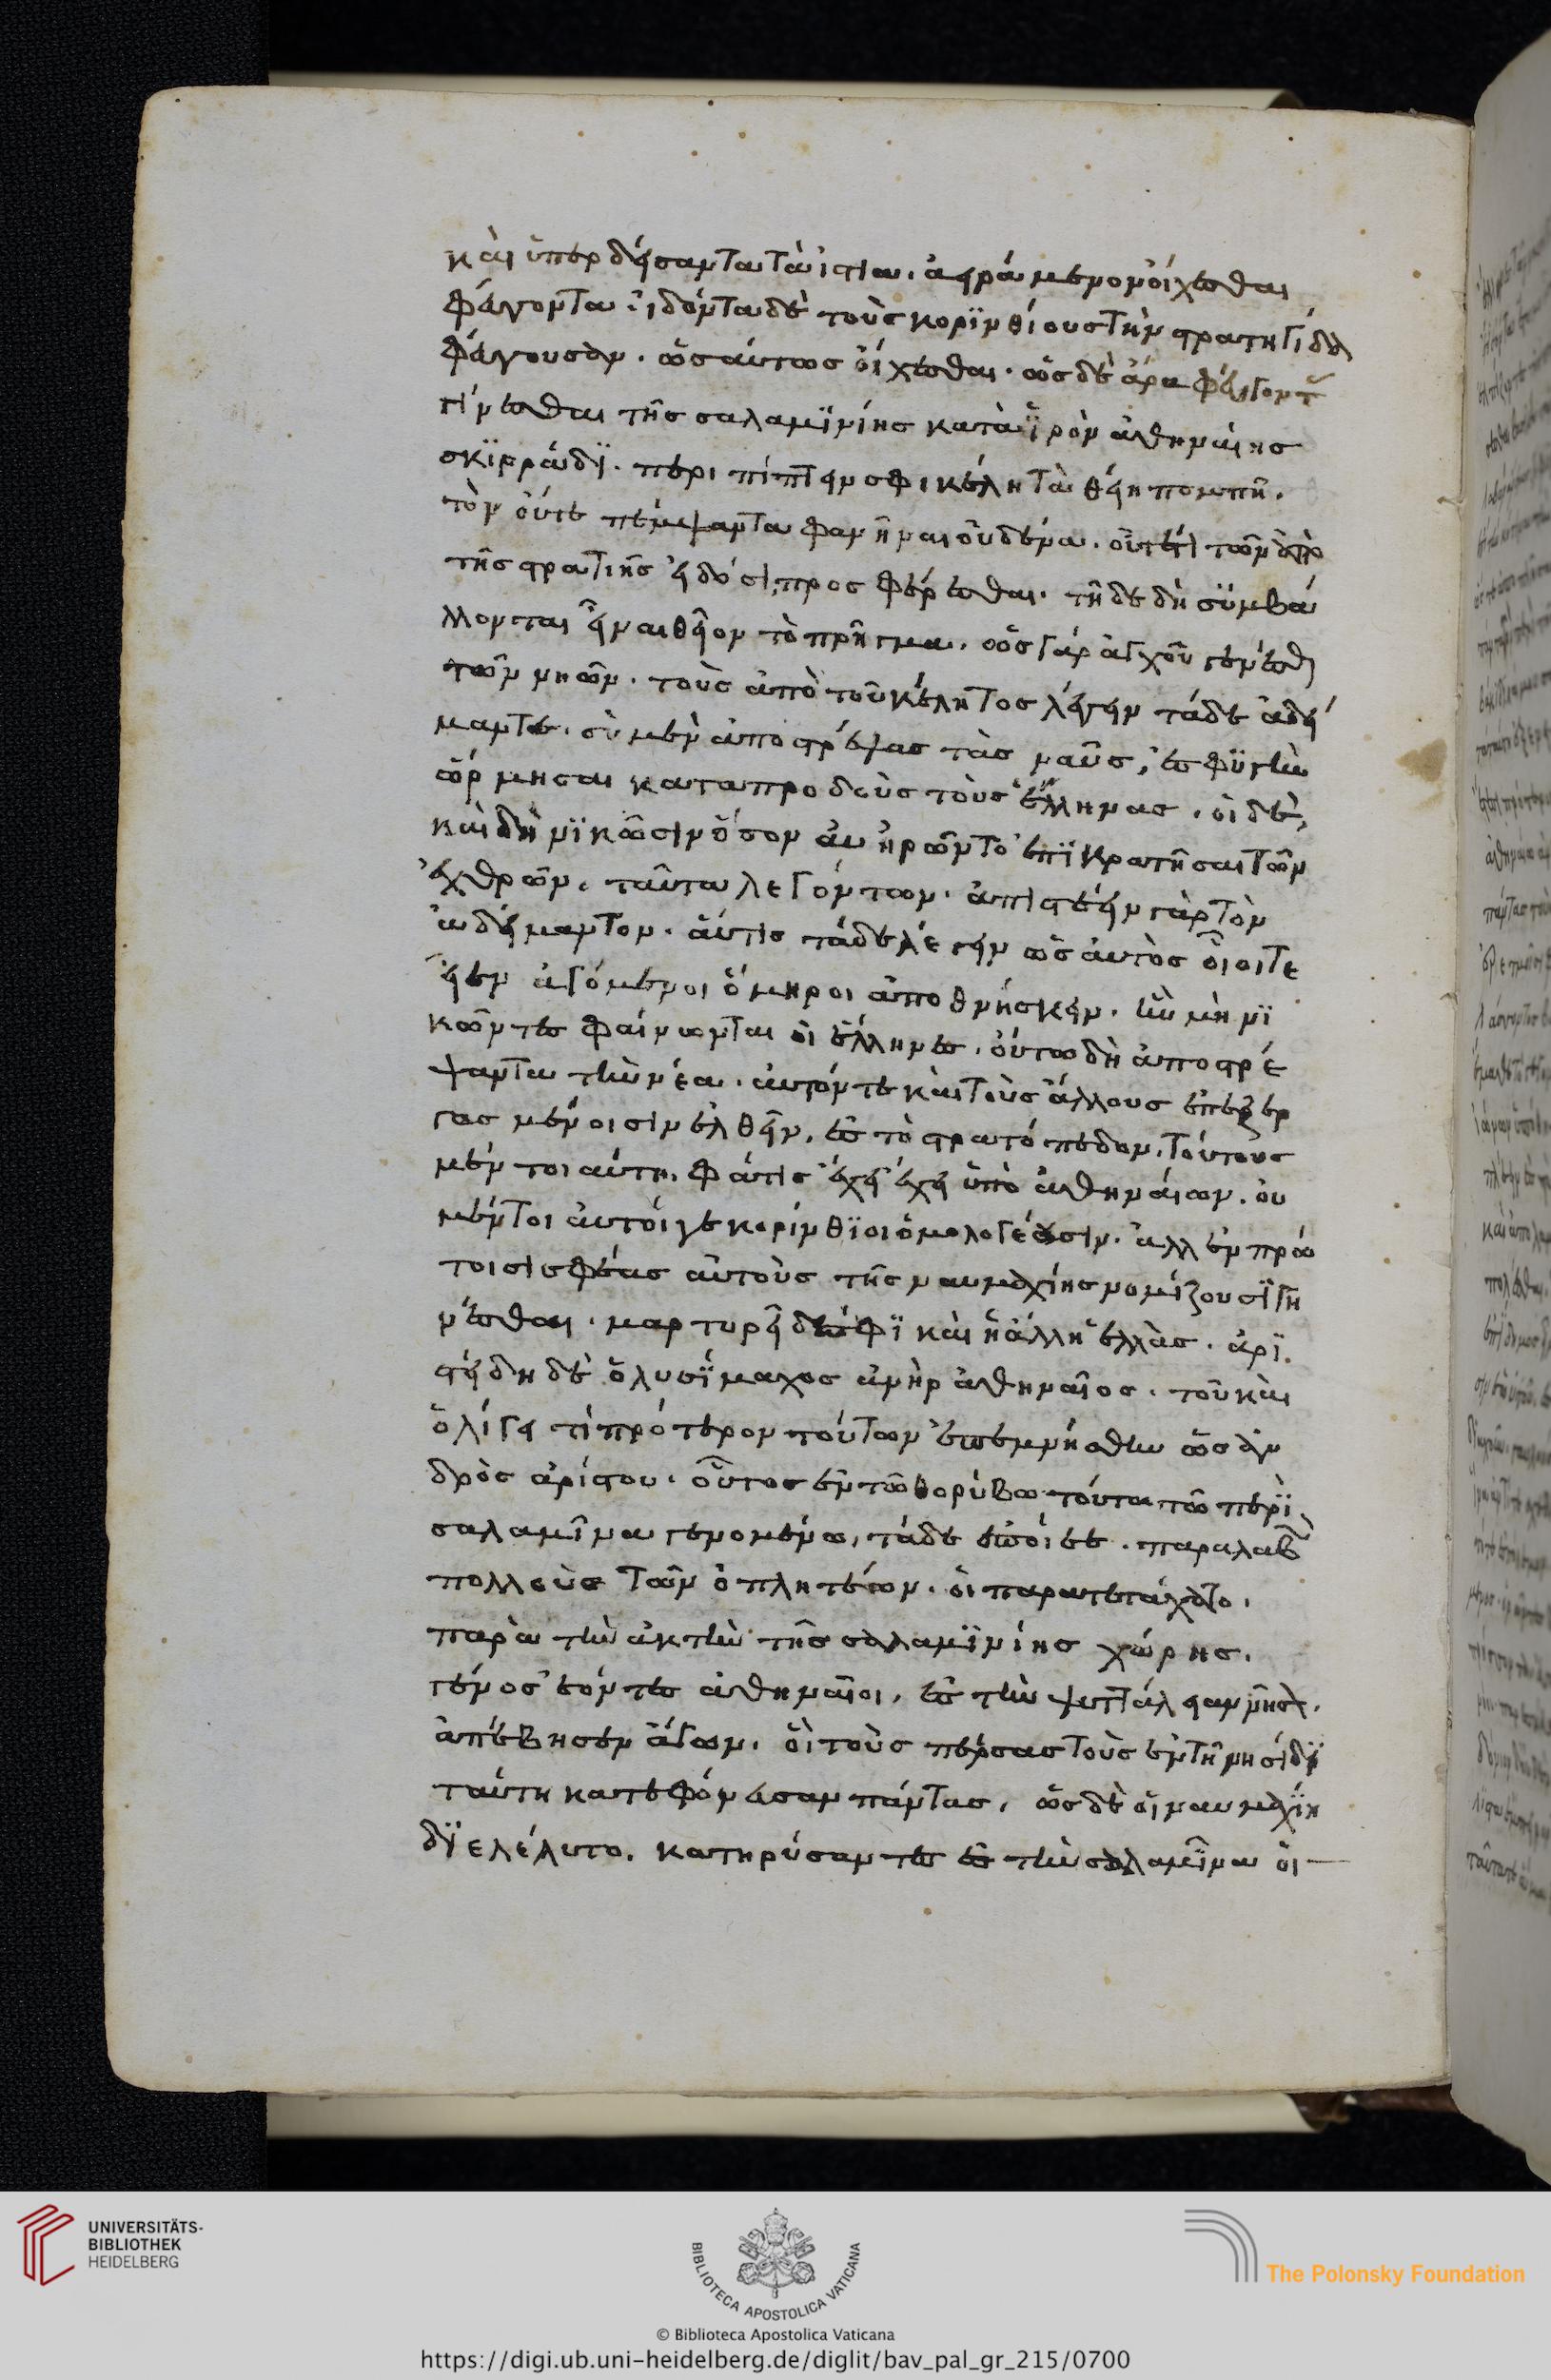 και ὑπερδείσαντα τὰ ἱστία. ἀειράμενον οἴχεσθαι
φεύγοντα. ἰδόντα δὲ τοὺς κορϊνθίους τὴν στρατηγίδα
φεύγουσαν. ὡσαύτως οἴχεσθαι. ὡς δὲ ἄρα φεύγοντ
γίνεσθαι τῆς σαλαμϊνίης κατὰ ϊρὸν ἀθηναίης
σκϊρράδϊ. περιπίπτειν σφι κέλητα θείη πομπῆ.
τὸν οὔτε πέμψαντα φανῆναι οὐδένα. οὔτέ τι τῶν ἀπὸ
τῆς στρατιῆς εἰδόσι, προσφέρεσθαι. τῆδε δὴ σϋμβά
λλονται εἶναι θεῖον τὸ πρῆγμα. ὡς γὰρ ἀγχοῦ γενέσθ
τῶν νηῶν. τοὺς ἀπὸ τοῦ κέλητος λέγειν τάδε ἀδεί
μαντε. σὺ μὲν ἀποστρέψας τὰς ναῦς, ἐς φϋγὴν
ὥρμησαι καταπροδοὺς τοὺς ἕλληνας. οἱ δὲ,
καὶ δὴ νϊκῶσιν ὅσον ἀν ἠρῶντο ἐπϊκρατῆσαι τῶν
ἐχθρῶν. ταῦτα λεγόντων. ἀπιστέειν γὰρ τὸν
ἀδείμαντον. αὖτις τάδε λέγειν ὡς αὐτοὶ οἷοί τε
εἶεν ἀγόμενοι ὅμηροι ἀποθνήσκειν. ἢν μὴ νϊ
κῶντες φαίνωνται οἱ ἕλληνες. οὕτω δὴ ἀποστρέ
ψαντα τὴν νέα. αὐτόν τε καὶ τοὺς ἄλλους ἐπεξερ
γασμένοισιν ἐλθεῖν. ἐς τὸ στρατόπεδον. τούτους
μέν τοι αὕτη. φάτις ἔχει ἔχει ὑπὸ ἀθηναίων. οὐ
μέντοι αὐτοί γε κορίνθϊοι ὁμολογέουσιν. ἀλλ ἐν πρώ
τοισι σφέας αὐτοὺς τῆς ναυμαχίης νομίζουσϊ γε
νέσθαι. μαρτυρεῖ δέ σφϊ καὶ ἡ ἄλλη ἑλλὰς. ἀρϊ.
στείδη δὲ ὁ λυσϊμάχος ἀνὴρ ἀθηναῖος. τοῦ καὶ
ὀλίγει τι πρότερον τούτων ἐπεμνήσθην ὡς ἀν
δρὸς ἀρίστου. οὗτος ἐν τῶ θορύβω τούτω τῶ περϊ
σαλαμῖνα γενομένω, τάδε ἐποίεε. παραλαβ
πολλοὺς τῶν ὁπλητέων. οἳ παρατετάχατο.
παρὰ τὴν ἀκτὴν τῆς σαλαμϊνίης χώρης.
γένος ἐόντες ἀθηναῖοι, ἐς τὴν ψυττάλειαν νῆσ.
ἀπέβησεν ἄγων. οἳ τοὺς πέρσας τοὺς ἐν τῆ νησίδϊ
ταύτη κατεφόνευσαν πάντας. ὡς δὲ ἡ ναυμαχϊη
δϊελέλυτο. κατηρύσαντες ἐς τὴν σαλαμῖνα οἱ
UNIVERSITÄTS-
BIBLIOTHEK
HEIDELBERG
BIBLIOTECA APOSTOLICA VATICANA
The Polonsky Foundation
© Biblioteca Apostolica Vaticana
https://digi.ub.uni-heidelberg.de/diglit/bav_pal_gr_215/0700